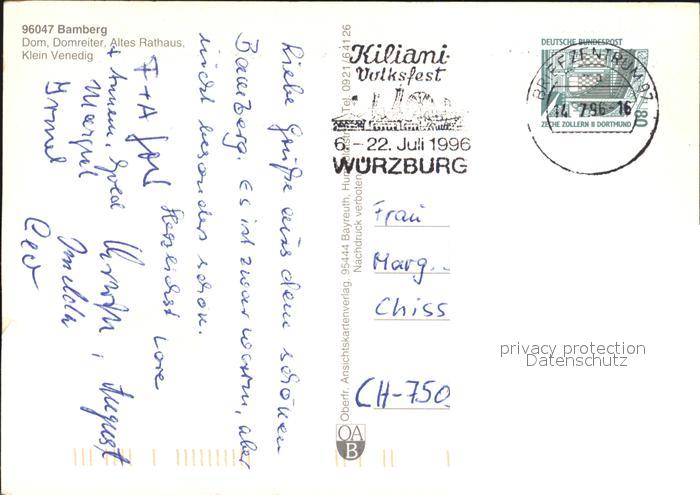 96047 Bamberg
Dom, Domreiter, Altes Rathaus,
Klein Venedig
Liebe Grüße aus dem schönen
Bamberg. Es ist zwar warm, aber
nicht besonders schön.
Herzlichst Lore
Kiliani-
Volksfest
6.-22. Juli 1996
WÜRZBURG
DEUTSCHE BUNDESPOST
80
ZECHE ZOLLERN II DORTMUND
BRIEFZENTRUM 97
14.7.96-16
Frau
Marg..
Chiss
CH-750
Oberfr. Ansichtskartenverlag, 95444 Bayreuth, Tel. 0921/64126
Nachdruck verboten
OA
B
privacy protection
Datenschutz